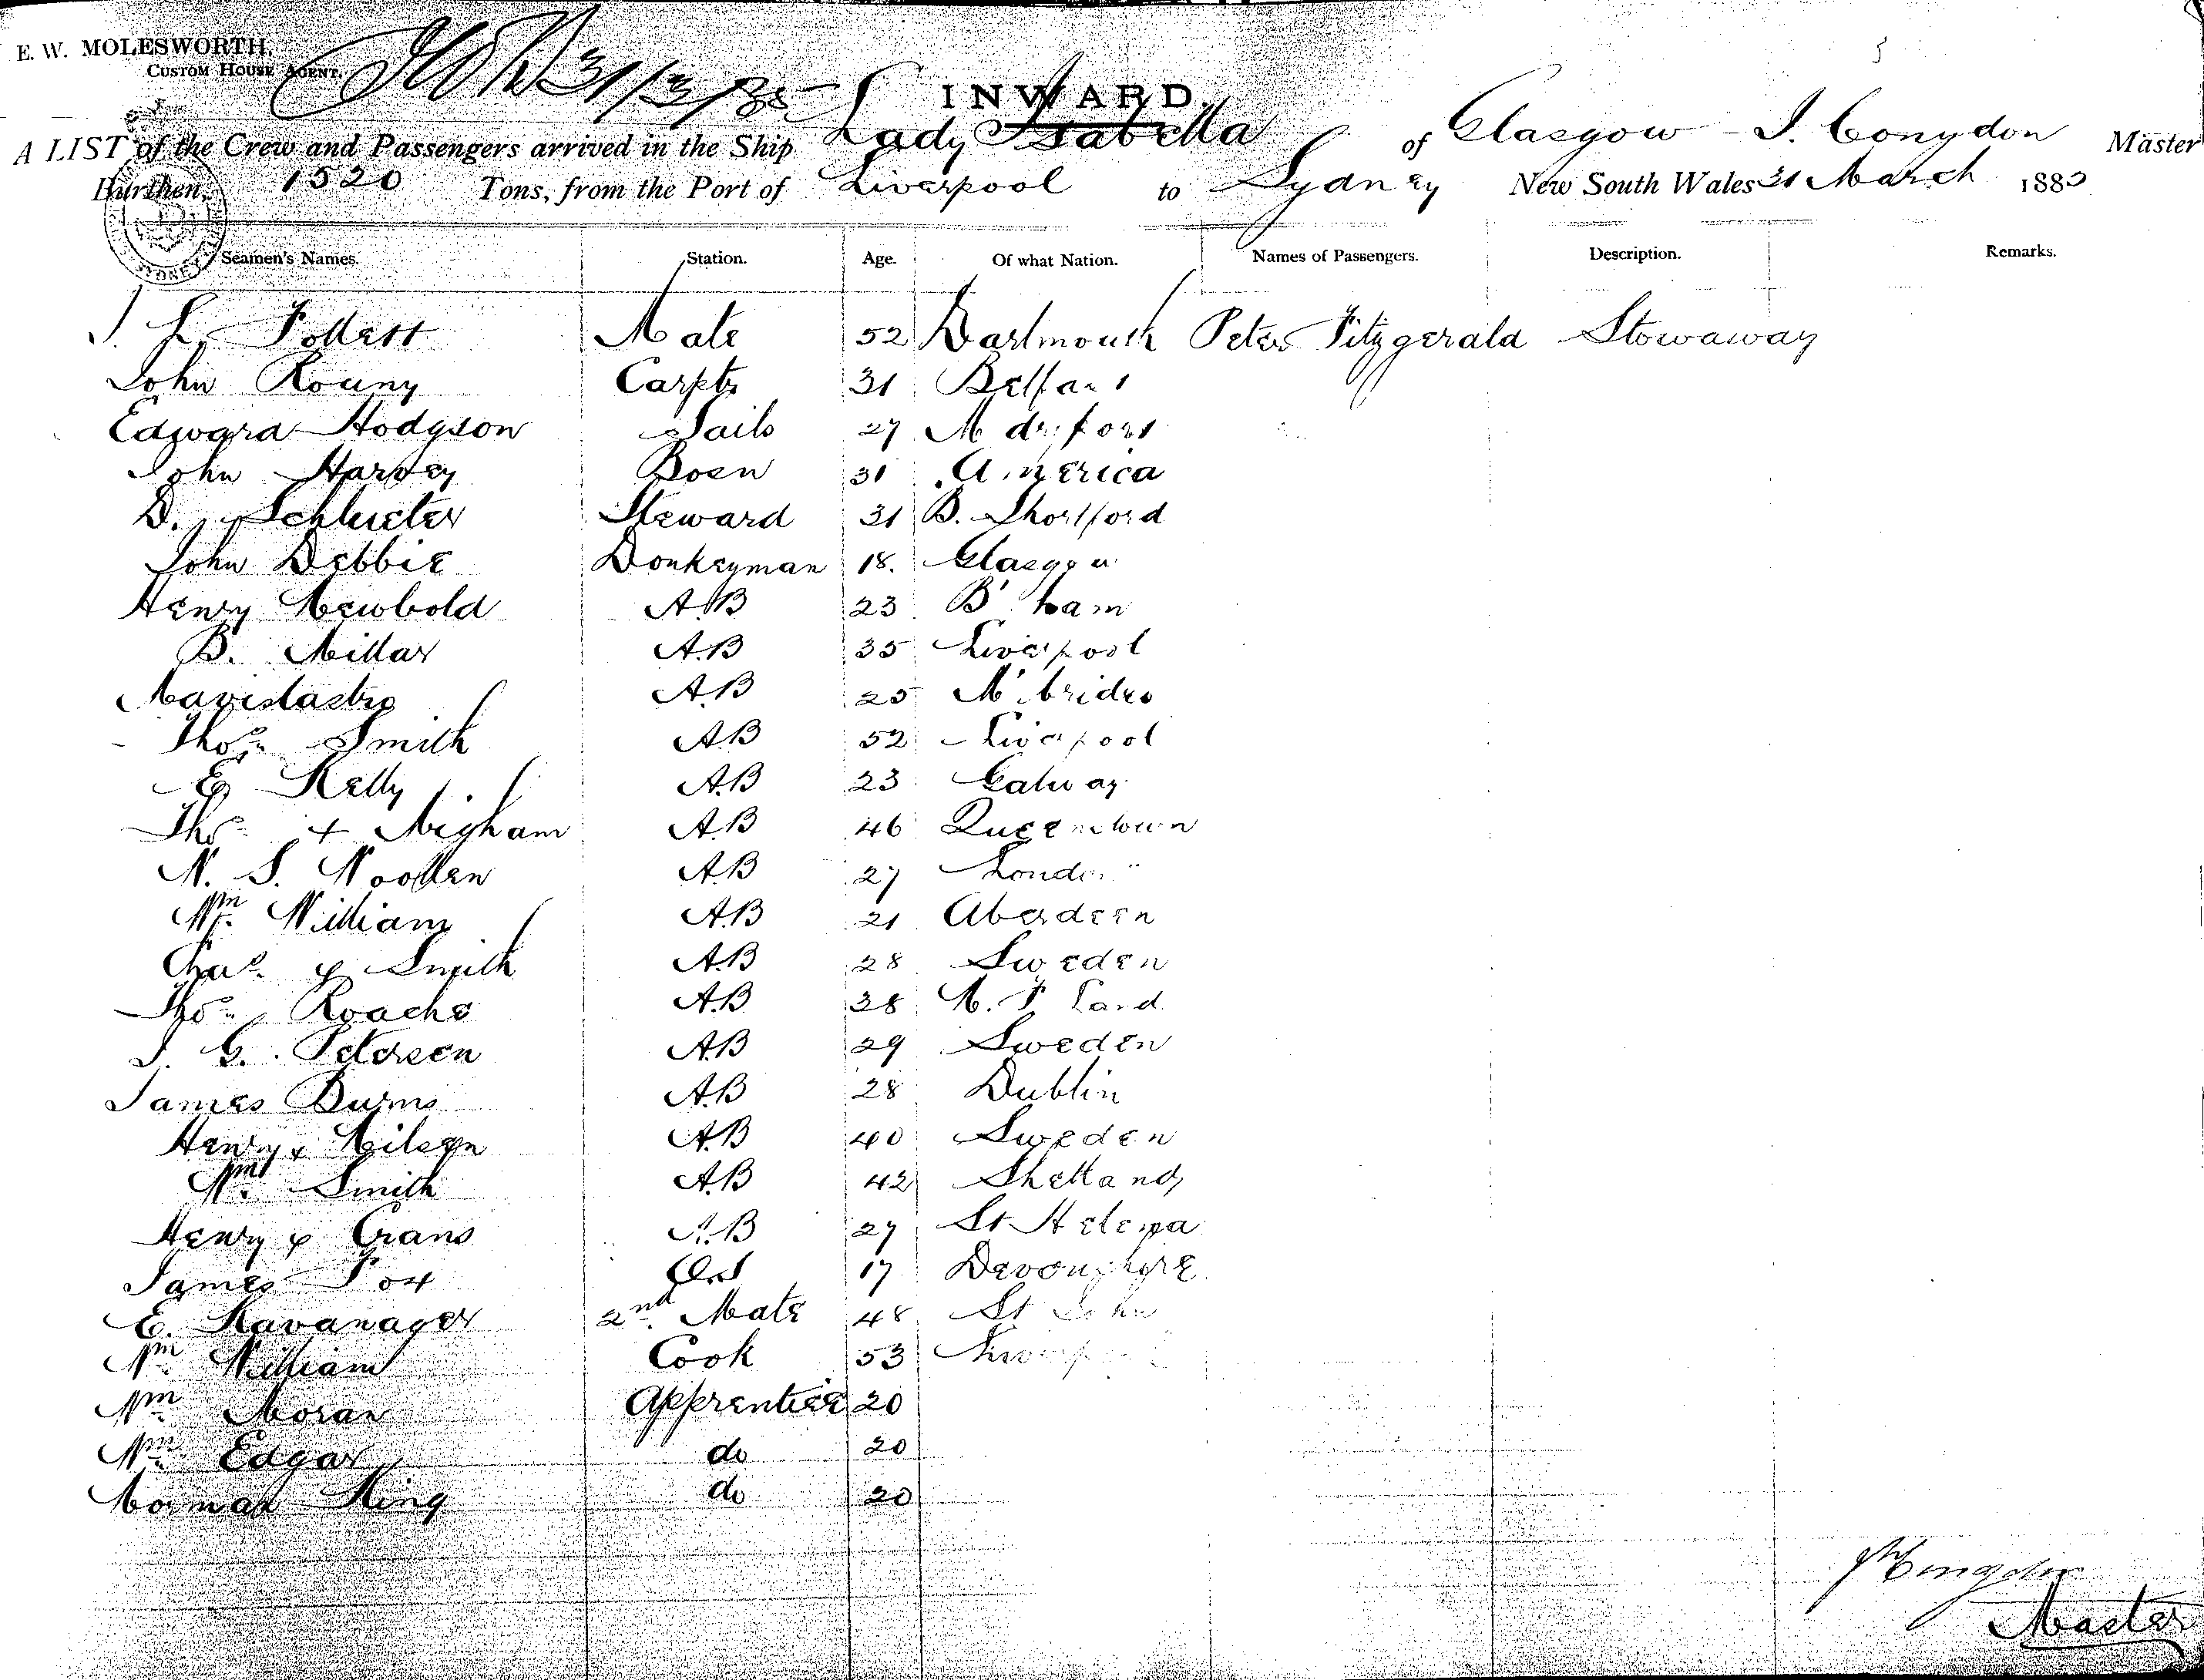 E. W. MOLESWORTH,
CUSTOM HOUSE AGENT.
31/3/85
INWARD.
A LIST of the Crew and Passengers arrived in the Ship Lady Isabella of Glasgow J. Congdon Master
Burthen, 1520 Tons, from the Port of Liverpool to Sydney New South Wales 31 March 1885
Seamen's Names. Station. Age. Of what Nation. Names of Passengers. Description. Remarks.
J. L. Follett Mate 52 Dartmouth Peter Fitzgerald Stowaway
John Rouny Carptr 31 Belfast
Edward Hodgson Sails 27
John Harvey Bosn 31 America
D. Schlueter Steward 31 B. Shortford
John Debbie Donkeyman 18. Glasgow
Henry Newbold A.B 23 B'ham
B. Millar A.B 35 Liverpool
A.B 25
Thos. Smith A.B 52 Liverpool
E Kelly A.B 23 Galway
Thos. + Nigham A.B 46 Queenstown
W. S. Woollen A.B 27 London
Wm. William A.B 21 Aberdeen
Chas. Smith A.B 28 Sweden
Thos. Roache A.B 38 N. F Land
J. G. Petersen A.B 29 Sweden
James Burns A.B 28 Dublin
Henry x Nilsen A.B 40 Sweden
Wm. Smith A.B 42 Shetland
Henry x Crans A.B 27 St Helena
James Fox Ord 17 Devonshire
E. Kavanager 2nd. Mate 48 St John
Wm. William Cook 53 Liverpool
Wm. Moran Apprentice 20
Wm. Edgar do 20
Norman King do 20
J Congdon
Master